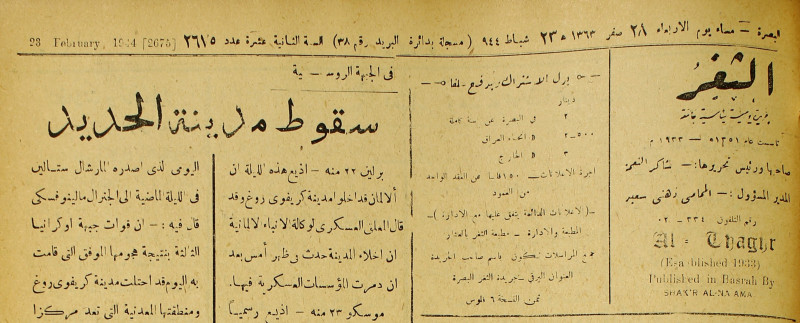 البصرة — مساء يوم الاربعاء ٢٨ صفر ١٣٦٣ هـ ٢٣ شباط ٩٤٤ (مسجلة بدائرة البريد رقم ٣٨) السنة الثانية عشرة عدد ٢٦١٥ 23 February, 1944 [2675]
الثغر
جريدة يومية سياسية جامعة
تأسست عام ١٣٥١ هـ — ١٩٣٣ م
صاحبها ورئيس تحريرها :— شاكر النعمة
المدير المسؤول :— المحامي زهني سعيد
رقم التلفون ٣٣٤ — ٠٢
Al - Thaghr
(Established 1933)
Published in Basrah By
SHAKIR AL-NAAMA
بدل الاشتراك ويدفع سلفا
دينار
٢ في البصرة عن سنة كاملة
٢٥٠٠ انحاء العراق
٣ الخارج
اجرة الاعلانات — ١٥٠ فلسا عن العقد الواحد
من العمود
(الاعلانات الدائمة يتفق عليها مع الادارة)
المطبعة والادارة — مطبعة الثغر بالعشار
جميع المراسلات تكون باسم صاحب الجريدة
العنوان البرقي — جريدة الثغر البصرة
ثمن النسخة ٦ فلوس
في الجبهة الروسية
سقوط مدينة الحديد
برلين ٢٢ منه — اذيع هذه الليلة ان
الالمان قد اخلوا مدينة كريفوي روغ وقد
قال المعلق العسكري لوكالة الانباء الالمانية
ان اخلاء المدينة حدث في ظهر أمس بعد
ان دمرت المؤسسات العسكرية فيها.
موسكو ٢٣ منه — اذيع رسميا
اليومي الذي اصدره المارشال ستالين
في الليلة الماضية الى الجنرال مالينوفسكي
قال فيه :— ان قوات جبهة اوكرانيا
الثالثة بنتيجة هجومها الموفق التي قامت
به اليوم قد احتلت مدينة كريفوي روغ
ومنطقتها المعدنية التي تعد مركزا